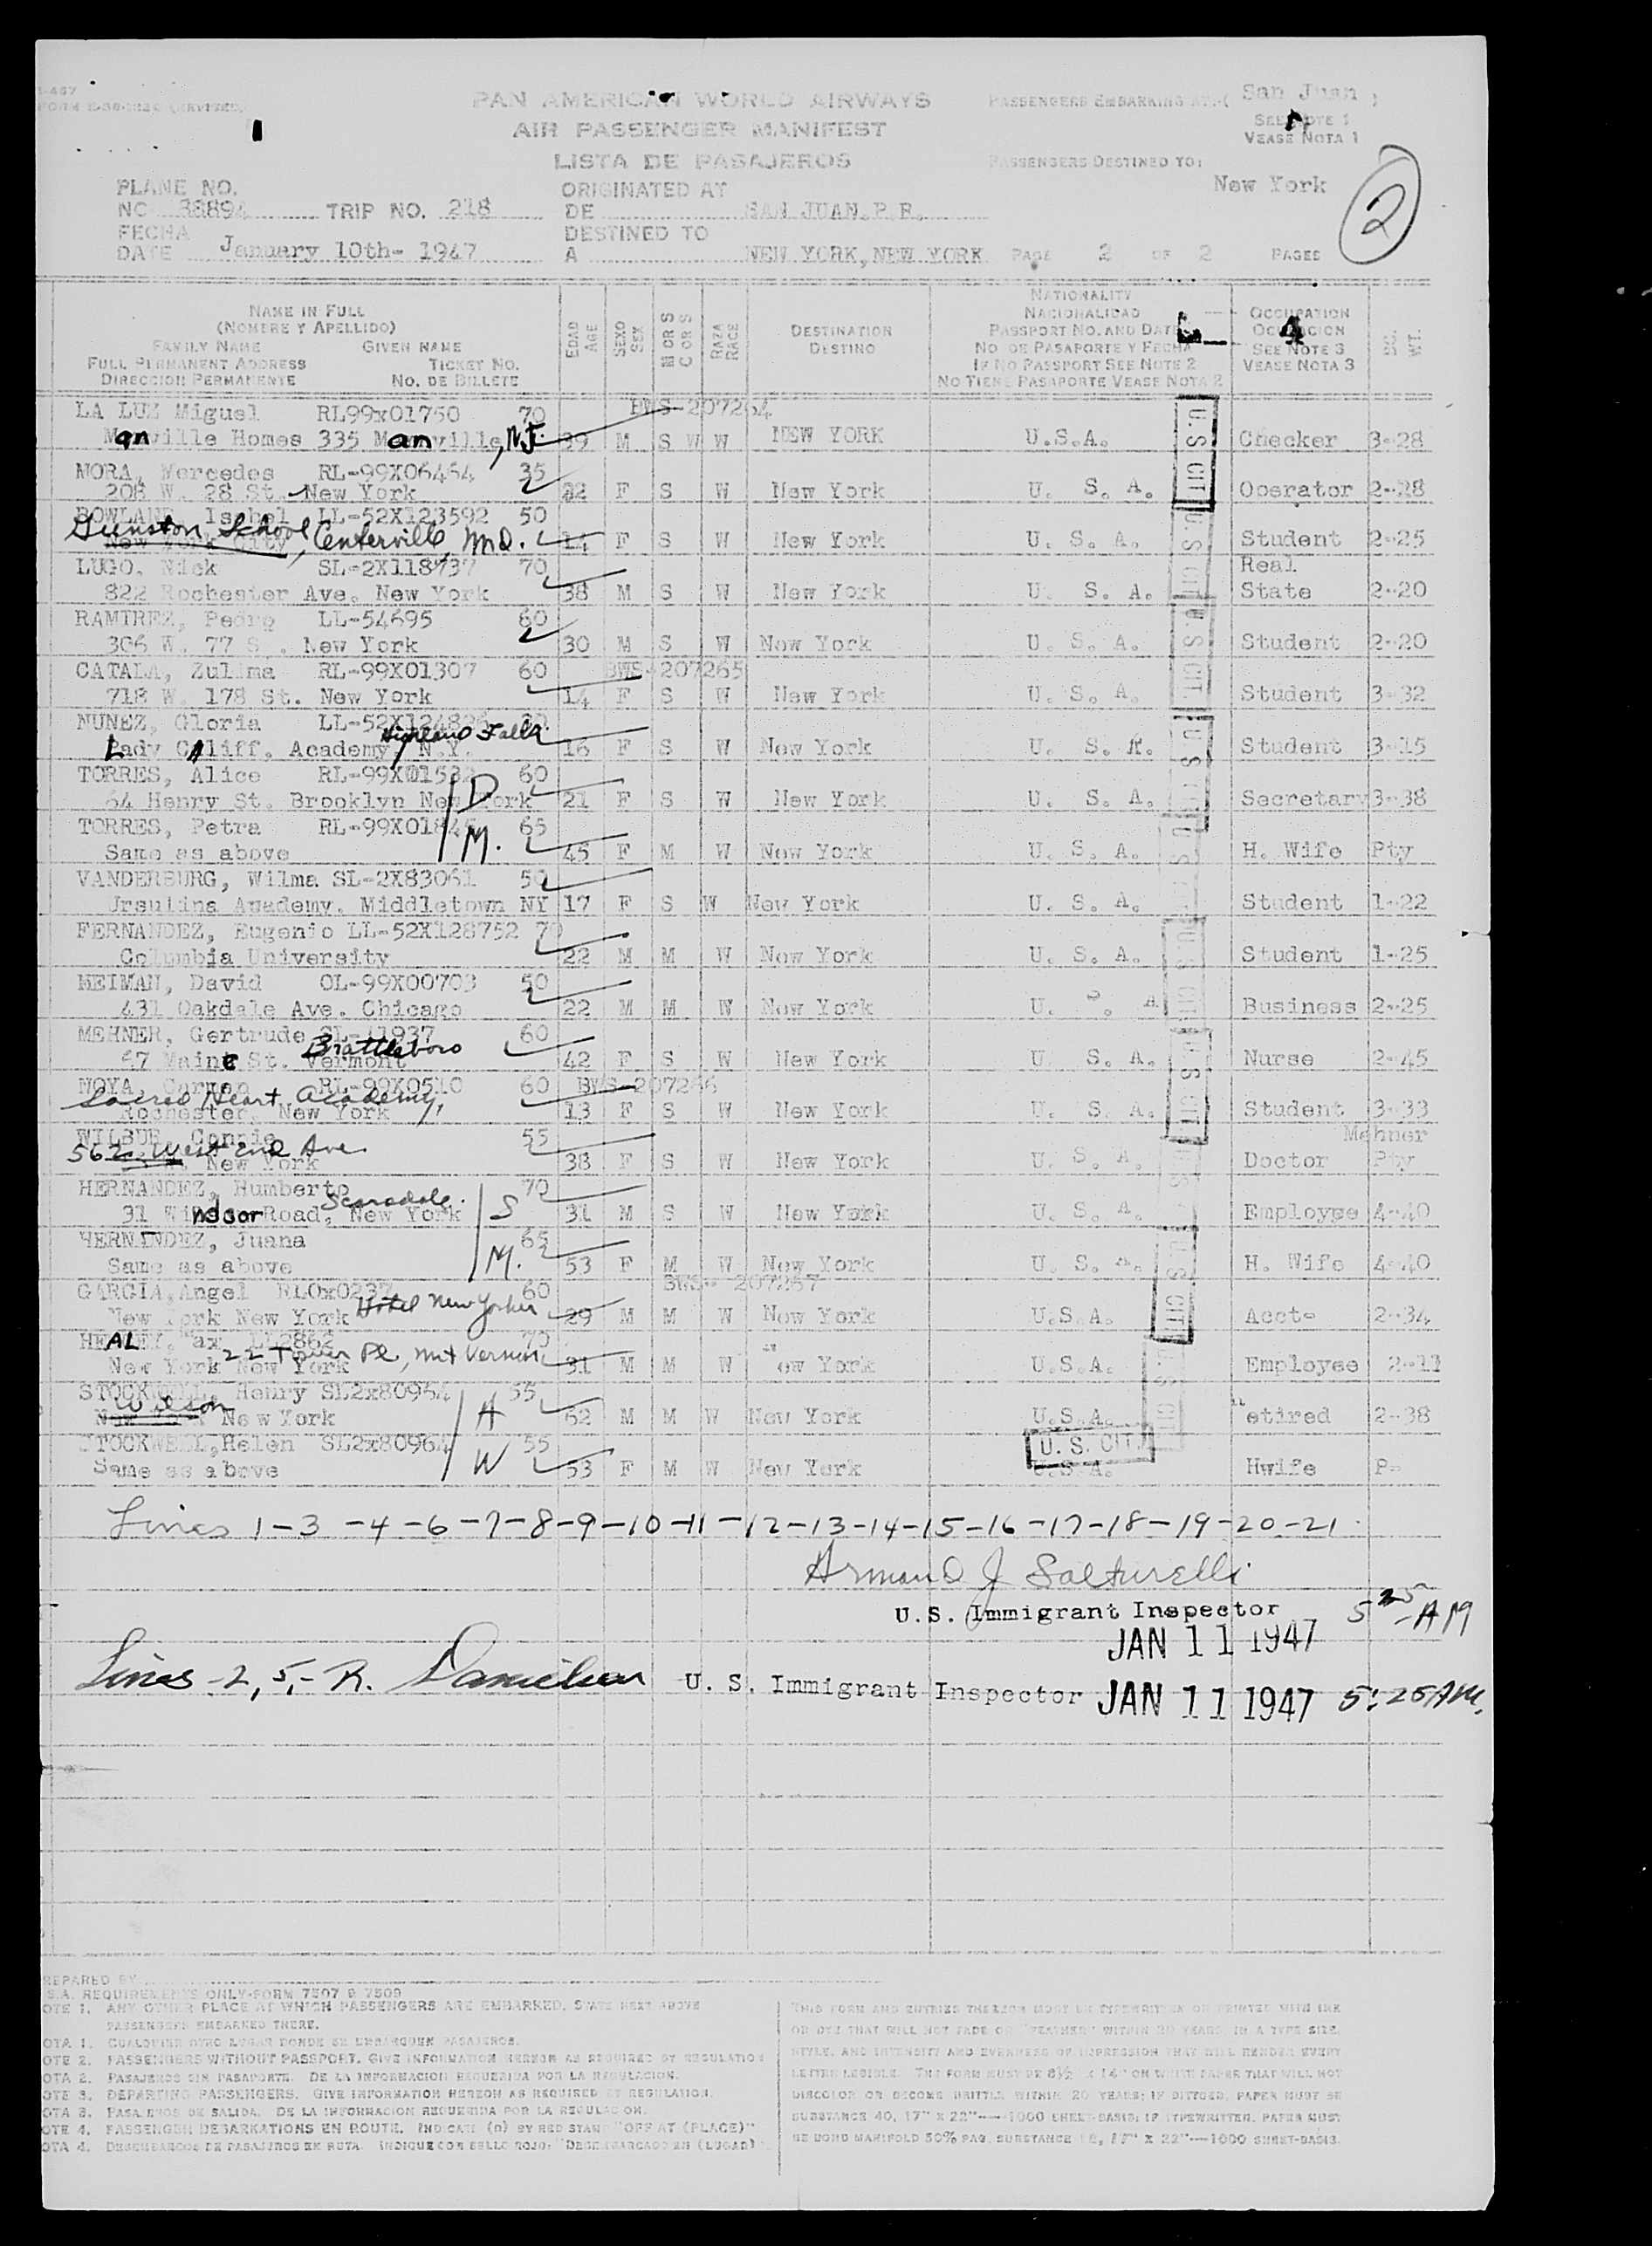 PAN AMERICAN WORLD AIRWAYS
AIR PASSENGER MANIFEST
LISTA DE PASAJEROS
PASSENGERS EMBARKING AT:( San Juan )
SEE NOTE 1
VEASE NOTA 1
PASSENGERS DESTINED TO:
New York
2
PLANE NO.
NC 38894 TRIP NO. 218
ORIGINATED AT
DE SAN JUAN.P.R.
FECHA
DATE January 10th- 1947
DESTINED TO
A NEW YORK,NEW YORK PAGE 2 OF 2 PAGES
NAME IN FULL
(NOMBRE Y APELLIDO)
FAMILY NAME GIVEN NAME
FULL PERMANENT ADDRESS TICKET NO.
DIRECCION PERMANENTE NO. DE BILLETE
EDAD AGE
SEXO SEX
M OR S
C OR S
RAZA RACE
DESTINATION
DESTINO
NATIONALITY
NACIONALIDAD
PASSPORT NO. AND DATE
NO. DE PASAPORTE Y FECHA
IF NO PASSPORT SEE NOTE 2
NO TIENE PASAPORTE VEASE NOTA 2
OCCUPATION
OCUPACION
SEE NOTE 3
VEASE NOTA 3
WT.
LA LUZ Miguel RL99x01750 70 BWS-207264
Manville Homes 335 Manville, N.J. 39 M S W W NEW YORK U.S.A. Checker 3-28
MORA, Mercedes RL-99X06464 35
208 W. 28 St. New York 32 F S W New York U. S. A. Operator 2-28
BOWLAND, Isabel LL-52X123592 50
Gunston School, Centerville, Md. 14 F S W New York U. S. A. Student 2-25
LUGO, Nick SL-2X118737 70 Real
822 Rochester Ave. New York 38 M S W New York U. S. A. State 2-20
RAMIREZ, Pedro LL-54695 80
306 W. 77 S . New York 30 M S W New York U. S. A. Student 2-20
CATALA, Zulima RL-99X01307 60 BWS-207265
718 W. 178 St. New York 14 F S W New York U. S. A. Student 3-32
NUNEZ, Gloria Highland Falls
Lady Cliff. Academy, N.Y. 16 F S W New York U. S. A. Student 3-15
TORRES, Alice 60 D
64 Henry St. Brooklyn New York 21 F S W New York U. S. A. Secretary 3-38
TORRES, Petra 65
Same as above M. 45 F M W New York U. S. A. H. Wife Pty
VANDERBURG, Wilma SL-2X83061 50
Ursulina Academy. Middletown NY 17 F S W New York U. S. A. Student 1-22
FERNANDEZ, Eugenio LL-52X128752 70
Columbia University 22 M M W New York U. S. A. Student 1-25
NEIMAN, David OL-99X00703 50
431 Oakdale Ave. Chicago 22 M M W New York U. S. A. Business 2-25
MEHNER, Gertrude SL-11937 60
67 Maine St. Brattleboro Vermont 42 F S W New York U. S. A. Nurse 2-45
MOYA, Carmen RL-99X0510 60 BWS-207266
Sacred Heart Academy,
Rochester, New York 13 F S W New York U. S. A. Student 3-33
WILBUR, Connie 55 Mehner
562 West End Ave
New York 38 F S W New York U. S. A. Doctor Pty
HERNANDEZ, Humberto 70
31 Windsor Road, Scarsdale. New York S 31 M S W New York U. S. A. Employee 4-40
HERNANDEZ, Juana 65
Same as above M. 53 F M W New York U. S. A. H. Wife 4-40
GARCIA, Angel RL0x0237 60 BWS- 207267
New York New York Hotel New Yorker 29 M M W New York U.S.A. Acct- 2-34
HEALEY, Max LL2862 70
New York New York 22 Tower Pl, Mt Vernon 31 M M W ew York U.S.A. Employee 2-11
STOCKWELL, Henry SL2x80964 55
Wilson
New York New York A 62 M M W New York U.S.A. etired 2-38
STOCKWELL, Helen SL2x80964 55
Same as above W 53 F M W New York U.S.A. Hwife P-
U. S. CIT.
Lines 1-3-4-6-7-8-9-10-11-12-13-14-15-16-17-18-19-20-21.
Armand J Salturelli
U.S. Immigrant Inspector 5 25 AM
JAN 11 1947
Lines -2, 5,- R. Danielsen U. S. Immigrant Inspector JAN 11 1947 5:25 AM.
REPARED BY
S.A. REQUIREMENTS ONLY-FORM 7507 & 7509
OTE 1. ANY OTHER PLACE AT WHICH PASSENGERS ARE EMBARKED. STATE NEXT ABOVE
PASSENGERS EMBARKED THERE.
OTA 1. CUALQUIER OTRO LUGAR DONDE SE EMBARQUEN PASAJEROS.
OTE 2. PASSENGERS WITHOUT PASSPORT. GIVE INFORMATION HEREON AS REQUIRED BY REGULATION
OTA 2. PASAJEROS SIN PASAPORTE. DE LA INFORMACION REQUERIDA POR LA REGULACION.
OTE 3. DEPARTING PASSENGERS. GIVE INFORMATION HEREON AS REQUIRED BY REGULATION.
OTA 3. PASAJEROS DE SALIDA. DE LA INFORMACION REQUERIDA POR LA REGULACION.
OTE 4. PASSENGER DEBARKATIONS EN ROUTE. INDICATE (D) BY RED STAMP "OFF AT (PLACE)"
OTA 4. DESEMBARCOS DE PASAJEROS EN RUTA. INDIQUE CON SELLO ROJO: "DESEMBARCADO EN (LUGAR)
THIS FORM AND ENTRIES THEREON MUST BE TYPEWRITTEN OR PRINTED WITH INK
OR DYE THAT WILL NOT FADE OR "FEATHER" WITHIN 20 YEARS, IN A TYPE SIZE,
STYLE, AND INTENSITY AND EVENNESS OF IMPRESSION THAT WILL RENDER EVERY
LETTER LEGIBLE. THE FORM MUST BE 8½ X 14" ON WHITE PAPER THAT WILL NOT
DISCOLOR OR BECOME BRITTLE WITHIN 20 YEARS; IF DITTOED, PAPER MUST BE
SUBSTANCE 40, 17" X 22"—1000 SHEET-BASIS; IF TYPEWRITTEN, PAPER MUST
BE BOND MANIFOLD 50% RAG, SUBSTANCE 18, 17" X 22"—1000 SHEET-BASIS.